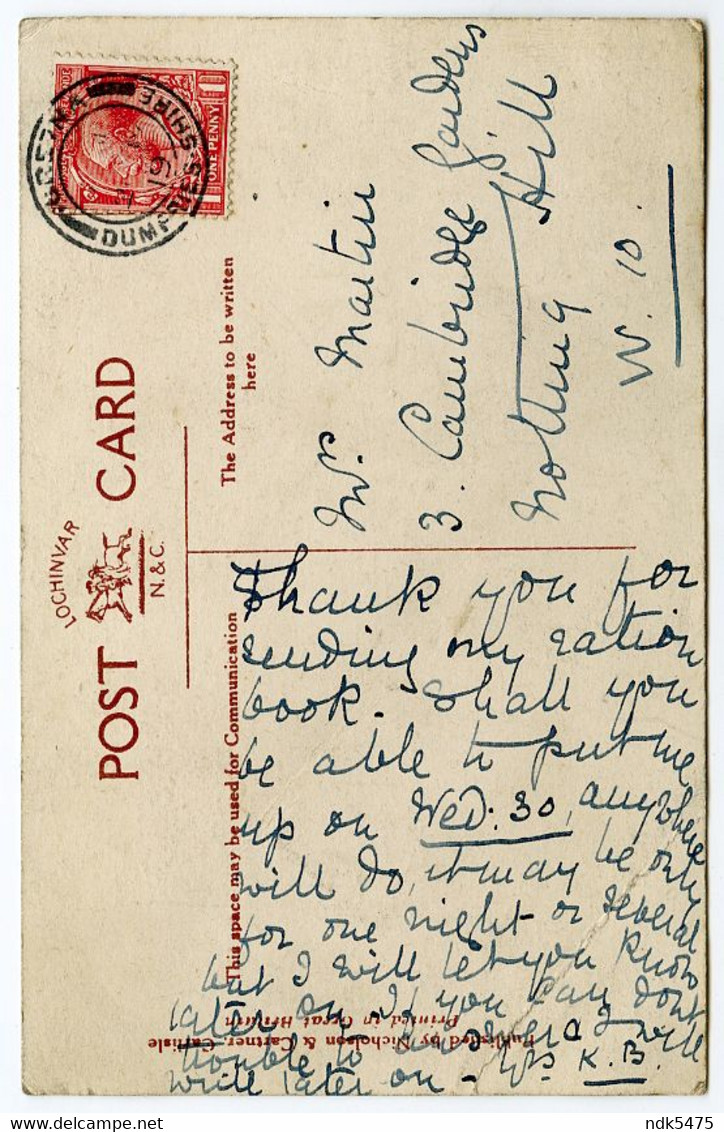 LOCHINVAR
POST CARD
N. & C.
This space may be used for Communication
The Address to be written
here
GRETNA
DUMFRIES-SHIRE
ONE PENNY
Mrs Martin
3. Cambridge Gardens
Notting Hill
W. 10.
Thank you for
sending my ration
book. Shall you
be able to put me
up on Wed: 30, anywhere
will do, it may be only
for one night or several
but I will let you know
later on. If you can dont
trouble to answer & I will
write later on - Yrs K.B.
Published by Nicholson & Cartner, Carlisle
Printed in Great Britain
© ndk5475